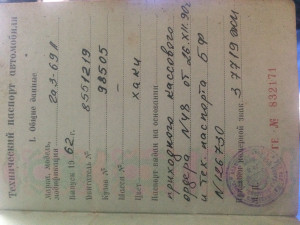 Технический паспорт автомобиля
1. Общие данные
Марка, модель,
модификация ГАЗ-69А
Выпуск 1962 г.
Двигатель № 8551219
Кузов № 98505
Шасси № —
Цвет хаки
Паспорт выдан на основании
приходного кассового
ордера №48 от 26.XII.90г.
и тех. паспорта БФ
№126730
номерной знак 3 7719
М. П.
ГЕ № 832171